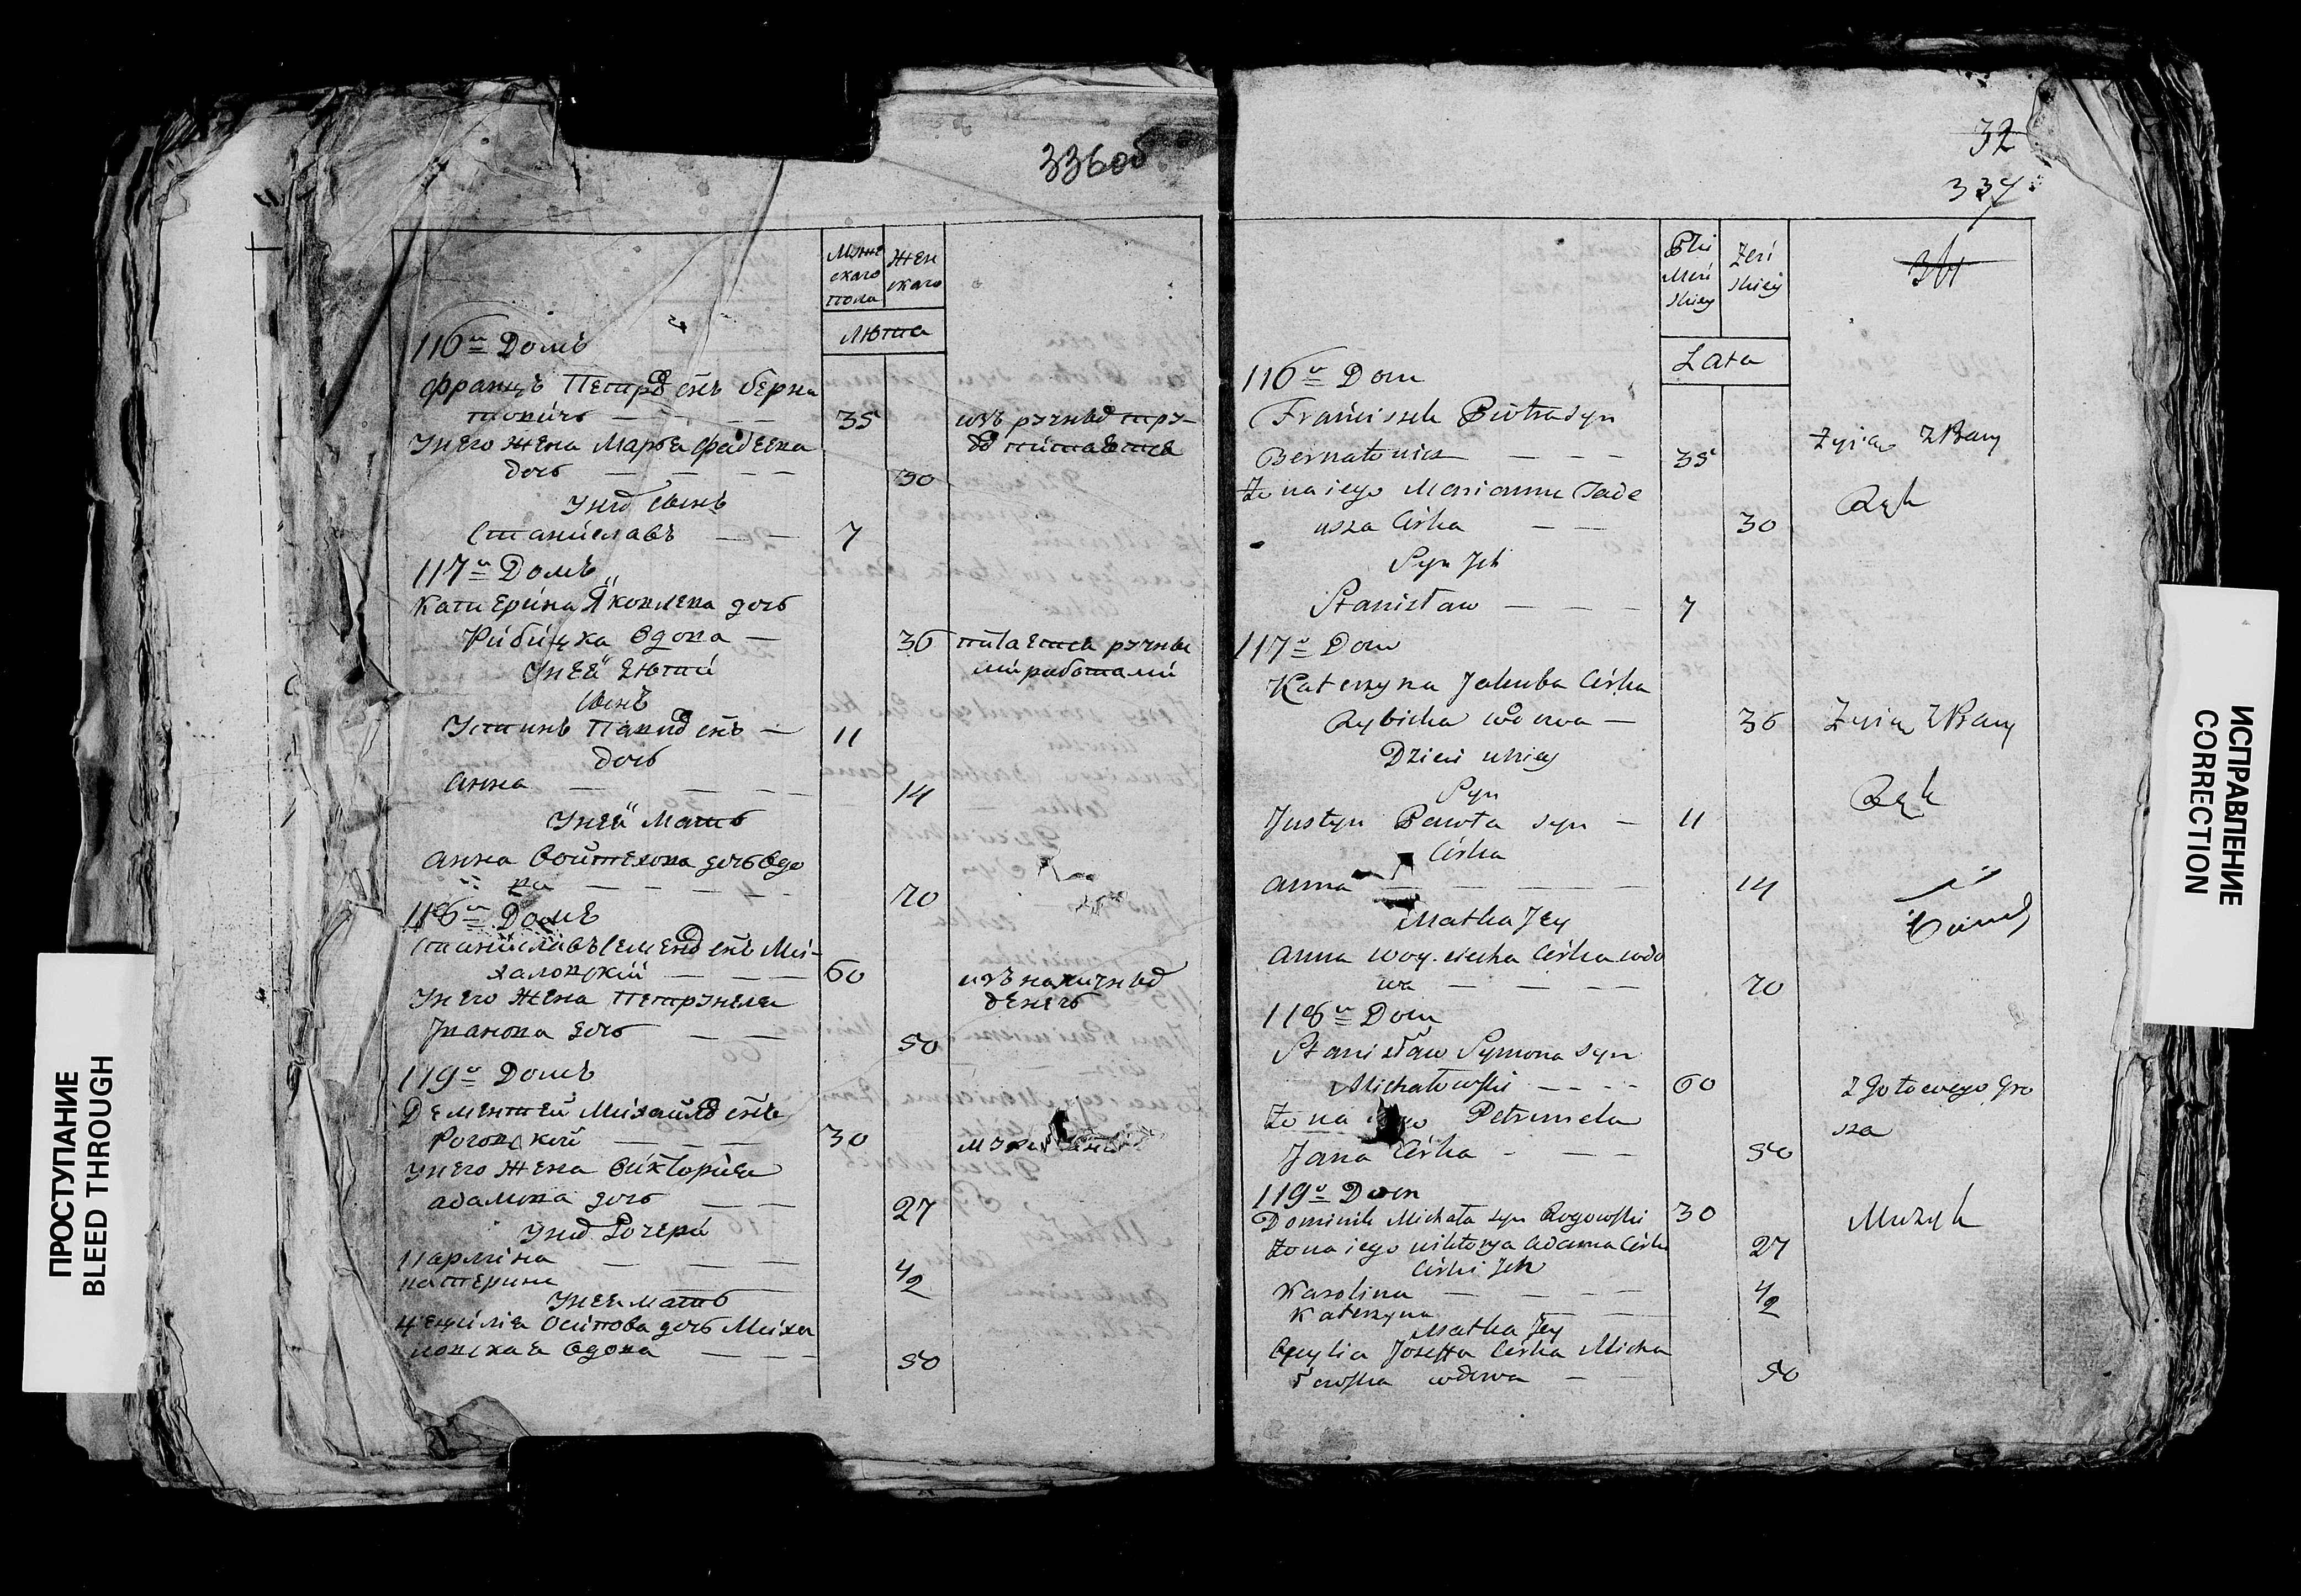 336об
Муже
скаго
пола
Жен
скаго
Люта
116й Домъ
Францъ Петровъ снъ Берна
товичъ
35
изъ ручныхъ тру-
дов питается
Унего жена Марья Фадеева
дочь
30
Унихъ сынъ
Станиславъ
7
117й Домъ
Катерина Яковлева дочь
Рибицка вдова
36
питается ручны
ми работами
Унеи дюти
сынъ
Устинъ Павловъ снъ
11
дочь
Анна
14
Унеи Мать
Анна Войтехова дочь вдо
ва
70
118й Домъ
Станиславъ Семеновъ снъ Ми-
халовский
60
изъ наличныхъ
денегъ
Унего Жена Петрунеля
Иванова дочь
50
119й Домъ
Дементей Михайловъ снъ
Роговской
30
Унего Жена Виктория
Адамова дочь
27
Унихъ Дочери
Катерина
4/2
Унеи мать
Цецилия Осипова дочь Миха
ловская вдова
50
32
337
Płci
Męs
skiey
Żeń
skiey
Lata
116й Dom
Franciszek Piotra syn
Bernatowicz
35
Żyie z Pracy
Rąk
Żona iego Marianna Tade
usza Córka
30
Syn Ich
Stanisław
7
117й Dom
Katerzyna Jakuba Córka
Rybicka wdowa
36
Żyie z Pracy
Rąk
Dzieci u niey
Syn
Justyn Pawła syn
11
Córka
Anna
14
Matka Jey
Anna Woyciecha Córka wdo
wa
70
118й Dom
Stanisław Symona syn
Michałowski
60
z Gotowego Gro
sza
Żona iego Petrunela
Jana Córka
50
119й Dom
Dominik Michała syn Rogowski
30
Muzyk
Żona iego Wiktorya Adama Córka
27
Córki Ich
Karolina
4/2
Katerzyna
Matka Jey
Cecylia Józeffa Córka Micha
łowska wdowa
50
ПРОСТУПАНИЕ
BLEED THROUGH
ИСПРАВЛЕНИЕ
CORRECTION